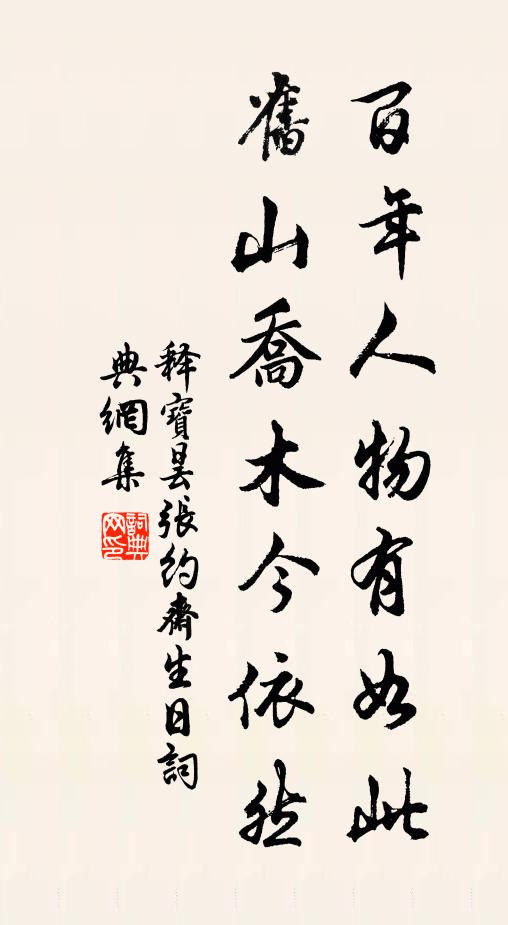 百年人物有如此
舊山喬木今依然
釋寶曇張約齋生日詞
典網集
詞典
网印